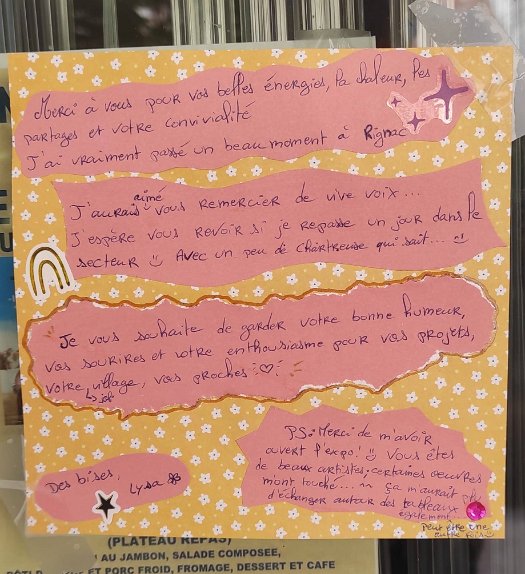 Merci à vous pour vos belles énergies, la chaleur, les
partages et votre convivialité
J'ai vraiment passé un beau moment à Rignac
aimé
J'aurais vous remercier de vive voix...
J'espère vous revoir si je repasse un jour dans le
secteur Avec un peu de Chartreuse qui sait...
Je vous souhaite de garder votre bonne humeur,
vos sourires et votre enthousiasme pour vos projets,
votre village, vos proches :♡:
PS: Merci de m'avoir
ouvert l'expo! Vous êtes
de beaux artistes; certaines oeuvres
m'ont touché... ça m'aurait plu
d'échanger autour des tableaux
également...
Peut être une
autre fois
Des bises,
Lysa
(PLATEAU REPAS)
AU JAMBON, SALADE COMPOSEE,
ET PORC FROID, FROMAGE, DESSERT ET CAFE